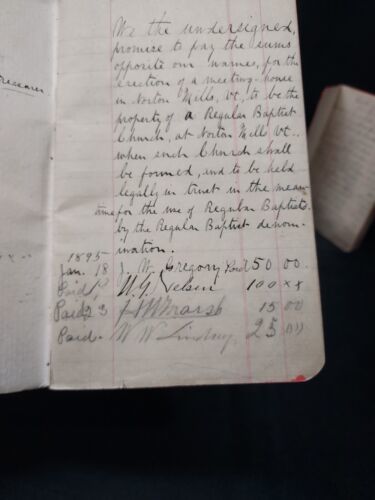 We the undersigned,
promise to pay the sums
opposite our names, for the
erection of a meeting-house
in Norton Mills, Vt., to be the
property of a Regular Baptist
Church, at Norton Mills Vt.,
when such Church shall
be formed, and to be held
legally in trust in the mean
time for the use of Regular Baptists
by the Regular Baptist denom-
ination.
1895
Jan. 18 J. W. Gregory Paid 50 00
Paid 100 xx
Paid 23 15 00
Paid W W Lindsay 25 00